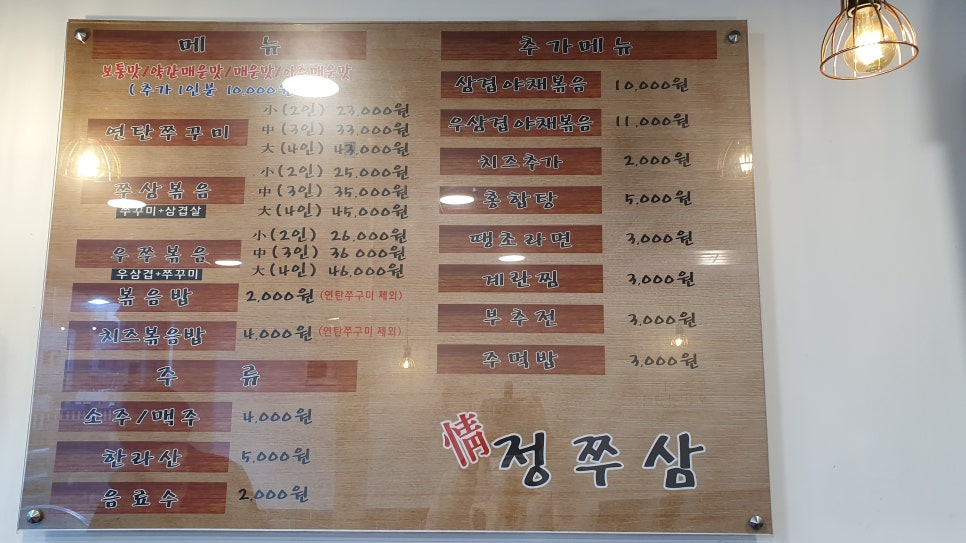 메 뉴
보통맛/약간매운맛/매운맛/아주매운맛
(추가 1인분 10,000원
연탄쭈꾸미
小(2인) 23,000원
中(3인) 33,000원
大(4인) 43,000원
쭈삼볶음
쭈꾸미+삼겹살
小(2인) 25,000원
中(3인) 35,000원
大(4인) 45,000원
우쭈볶음
우삼겹+쭈꾸미
小(2인) 26,000원
中(3인) 36,000원
大(4인) 46,000원
볶음밥 2,000원 (연탄쭈구미 제외)
치즈볶음밥 4,000원 (연탄쭈구미 제외)
주 류
소주/맥주 4,000원
한라산 5,000원
음료수 2,000원
추가메뉴
삼겹야채볶음 10,000원
우삼겹야채볶음 11,000원
치즈추가 2,000원
홍합탕 5,000원
땡초라면 3,000원
계란찜 3,000원
부추전 3,000원
주먹밥 3,000원
情 정쭈삼